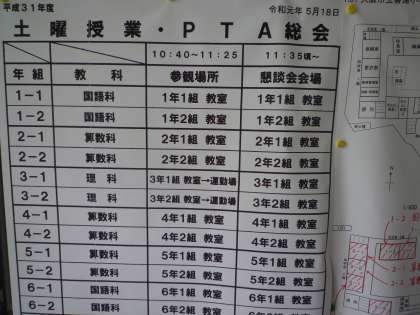 平成31年度
令和元年 5月18日
土曜授業・PTA総会
10:40～11:25 11:35頃～
年組 教科 参観場所 懇談会会場
1－1 国語科 1年1組 教室 1年1組 教室
1－2 国語科 1年2組 教室 1年2組 教室
2－1 算数科 2年1組 教室 2年1組 教室
2－2 算数科 2年2組 教室 2年2組 教室
3－1 理科 3年1組 教室→運動場 3年1組 教室
3－2 理科 3年2組 教室→運動場 3年2組 教室
4－1 算数科 4年1組 教室 4年1組 教室
4－2 算数科 4年2組 教室 4年2組 教室
5－1 算数科 5年1組 教室 5年1組 教室
5－2 算数科 5年2組 教室 5年2組 教室
6－1 国語科 6年1組 教室 6年1組 教室
6－2 国語科 6年2組 教室